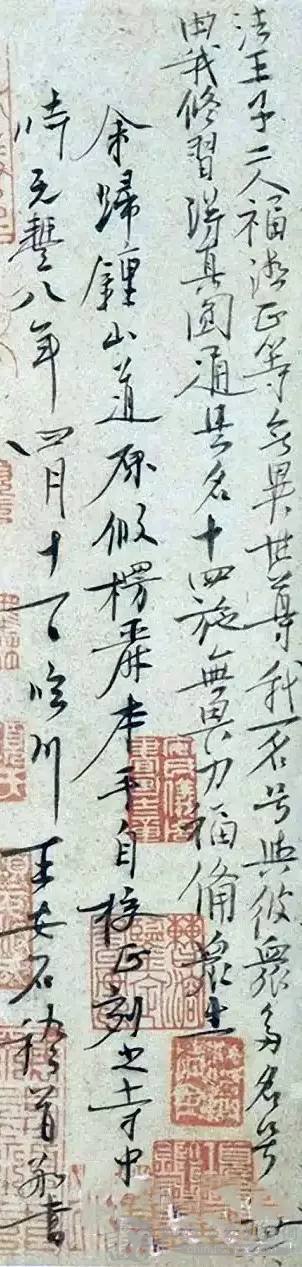 法王子二人福德正等无異世尊我一名号與彼衆多名号無
由我修習得真圓通是名十四施無畏力福備衆生
余歸鍾山道原假楞嚴本手自校正刻之寺中
時元豐八年四月十一日臨川王安石稽首敬書